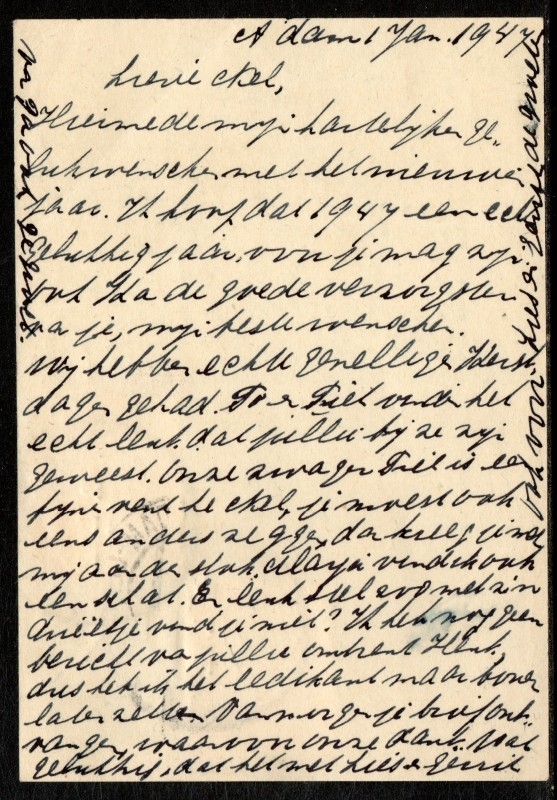 A'dam 1 Jan. 1947
Lieve ckel,
Hiermede mijn hartelijke ge-
lukwenschen met het nieuwe
jaar. Ik hoop dat 1947 een echt
gelukkig jaar voor je mag zijn
ook Ida de goede verzorgster
van je, mijn beste wenschen.
Wij hebben echt gezellige Kerst
dagen gehad. To en Fiet vinden het
echt leuk dat jullie bij ze zijn
geweest. Onze zwager Fiet is een
fijne vent he ckel, je moest ook
eens anders zeggen, dan kreeg je met
mij aan de stok
een schat. Een leuk stel zoo met z'n
drietje vind je niet? Ik heb nog geen
bericht van jullie omtrent Henk,
dus heb ik het ledikant maar boven
laten zetten. Vanmorgen je brief ont-
vangen, waarvoor onze dank. Wat
gelukkig, dat het met Lies en Gerrit
ook voor Lies en